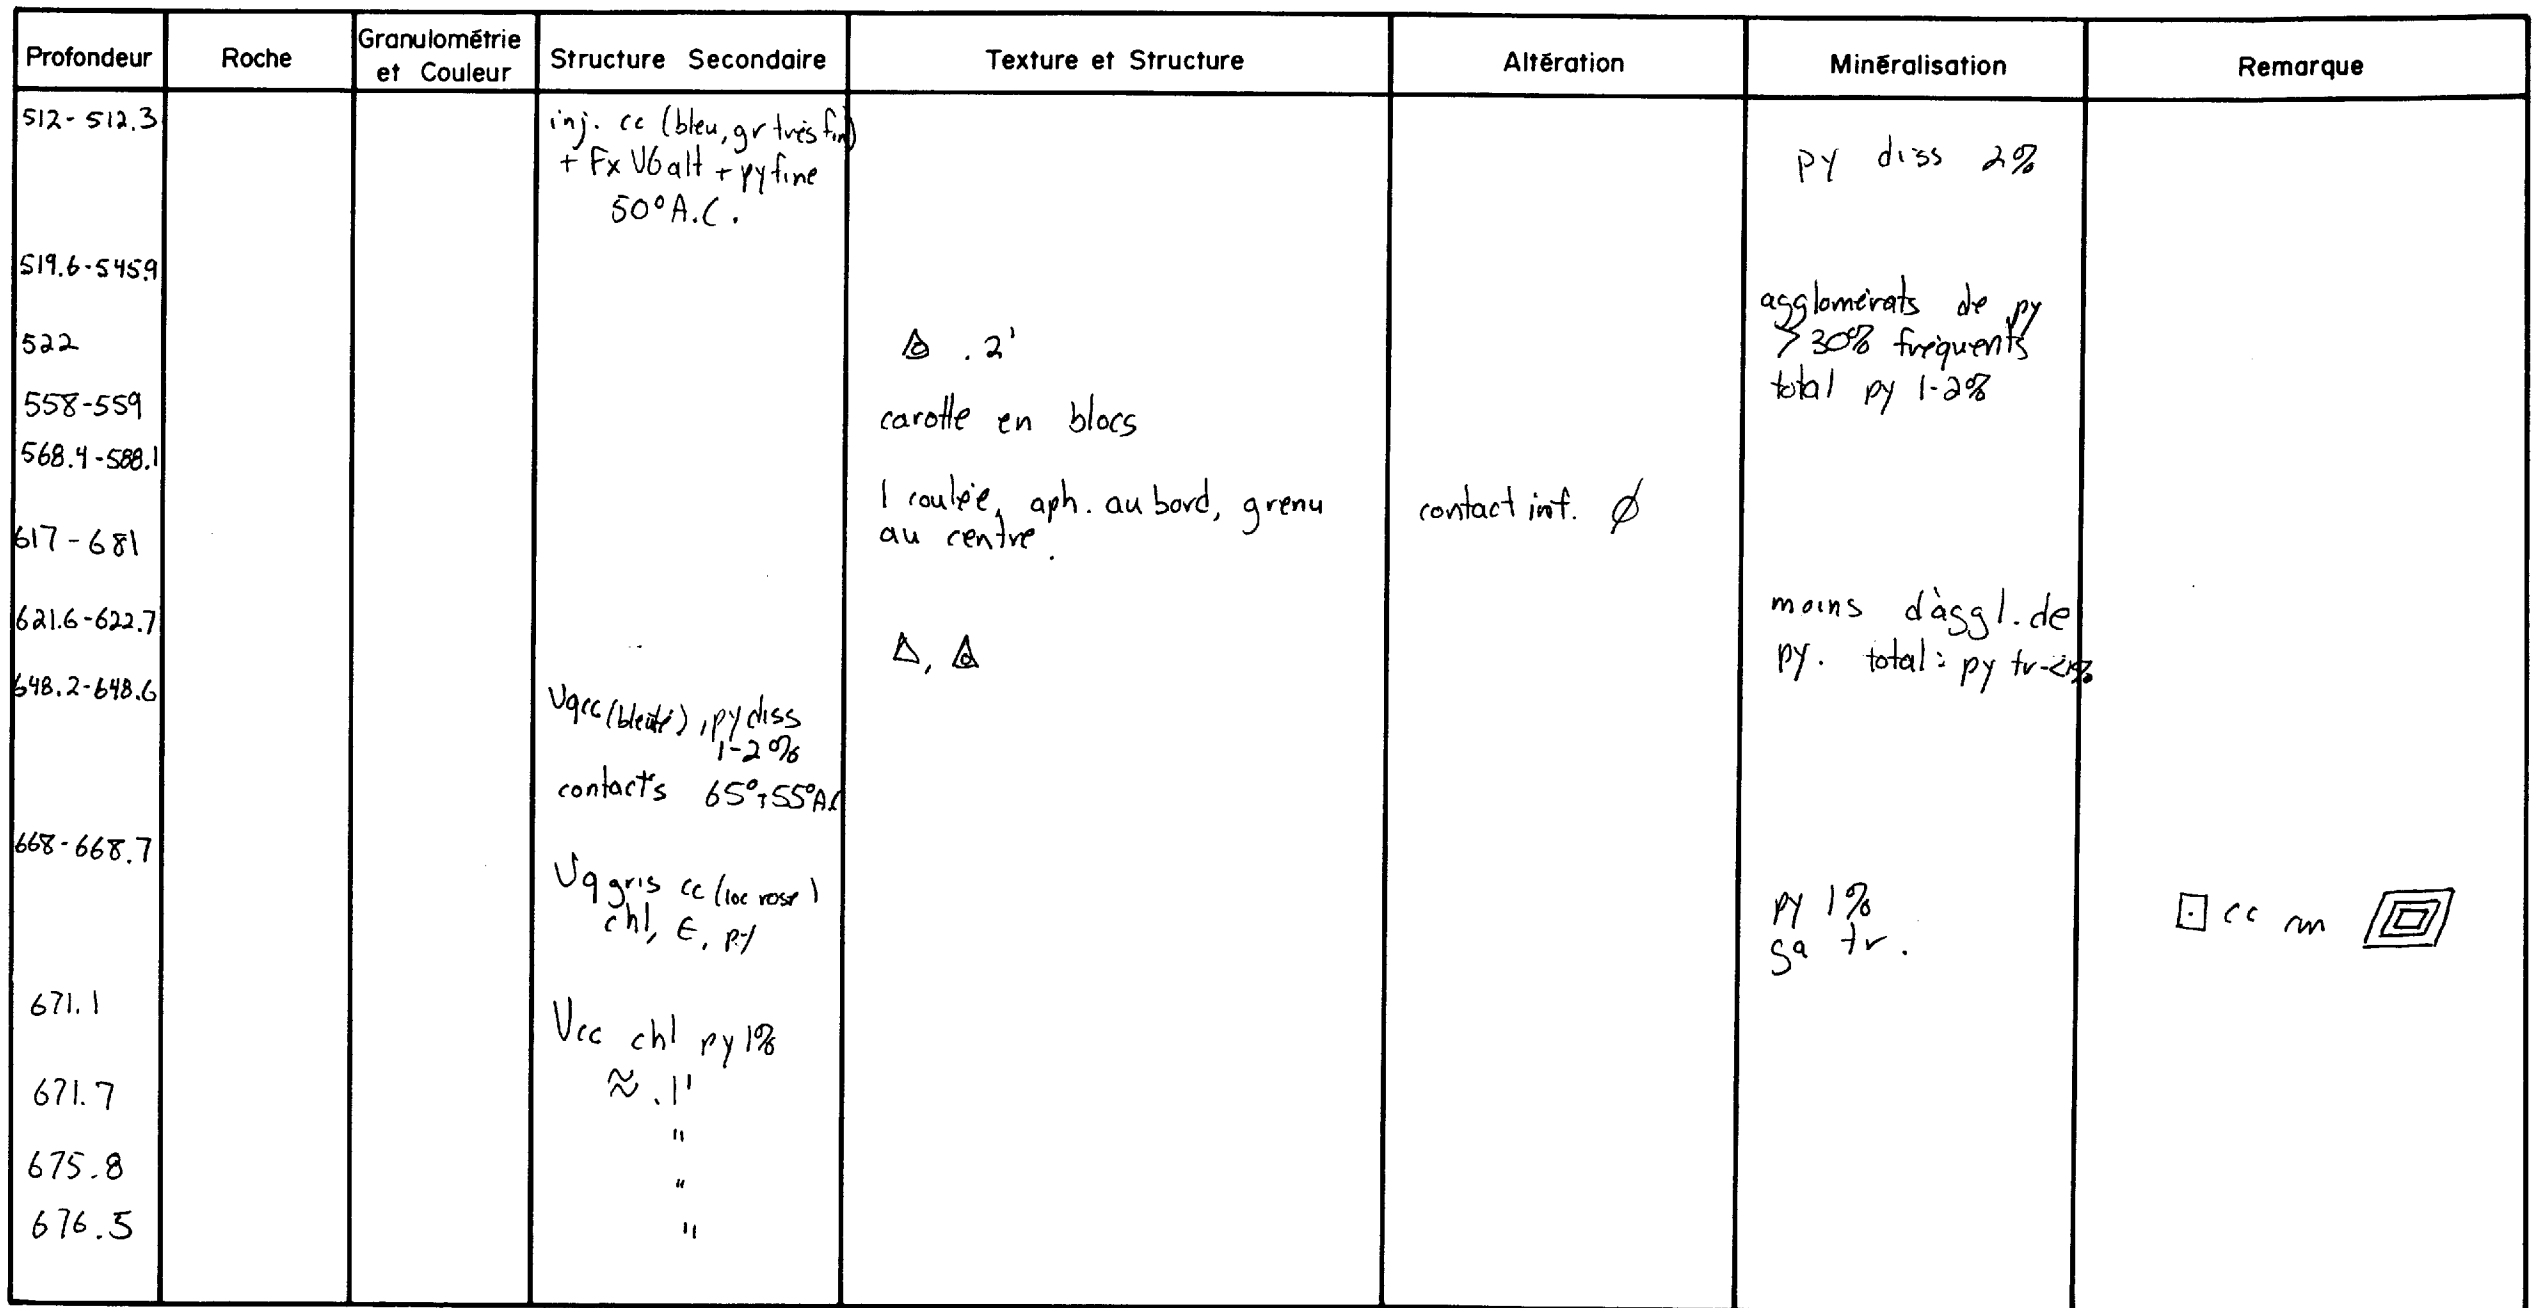 Profondeur Roche Granulométrie et Couleur Structure Secondaire Texture et Structure Altération Minéralisation Remarque
512-512.3
inj. cc (bleu, gr très fin)
+ Fx V6 alt + py fine
50° A.C.
py diss 2%
519.6-545.9
agglomérats de py
>30% fréquents
total py 1-2%
522
.2'
558-559
carotte en blocs
568.4-588.1
1 coulée, aph. au bord, grenu
au centre.
contact inf. Ø
617-681
moins d'aggl. de
py. total: py tr-<1%
621.6-622.7
Δ,
648.2-648.6
Vqcc (bleuté), py diss
1-2%
contacts 65°+55° A.C
668-668.7
Vq gris cc (loc rose)
chl, E, py
py 1%
tr.
cc
671.1
Vcc chl py 1%
≈ .1'
671.7
"
675.8
"
676.5
"